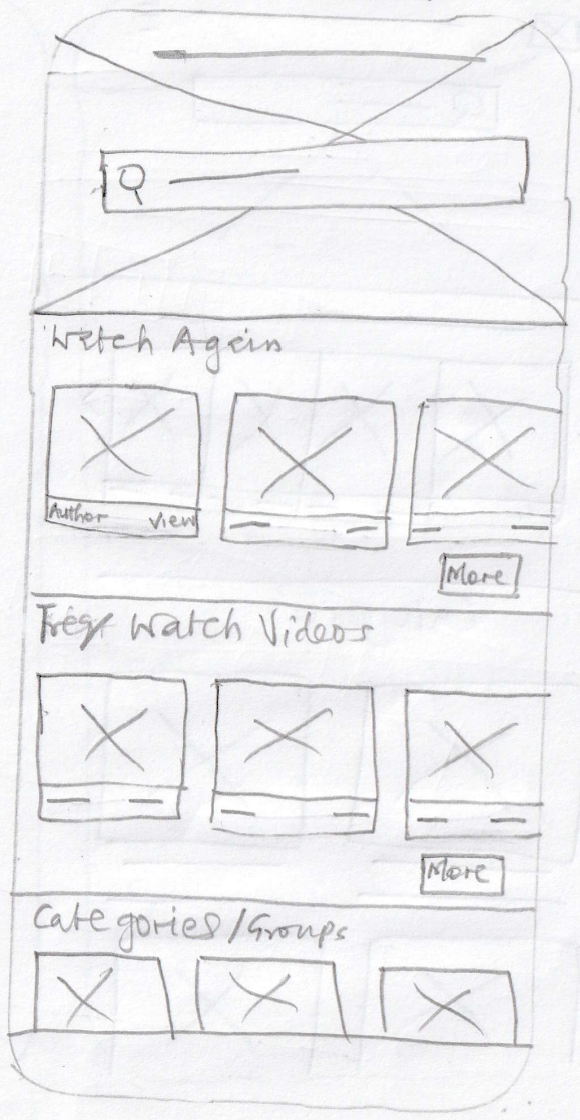 Watch Again
Author View
More
Freq Watch Videos
More
Categories/Groups